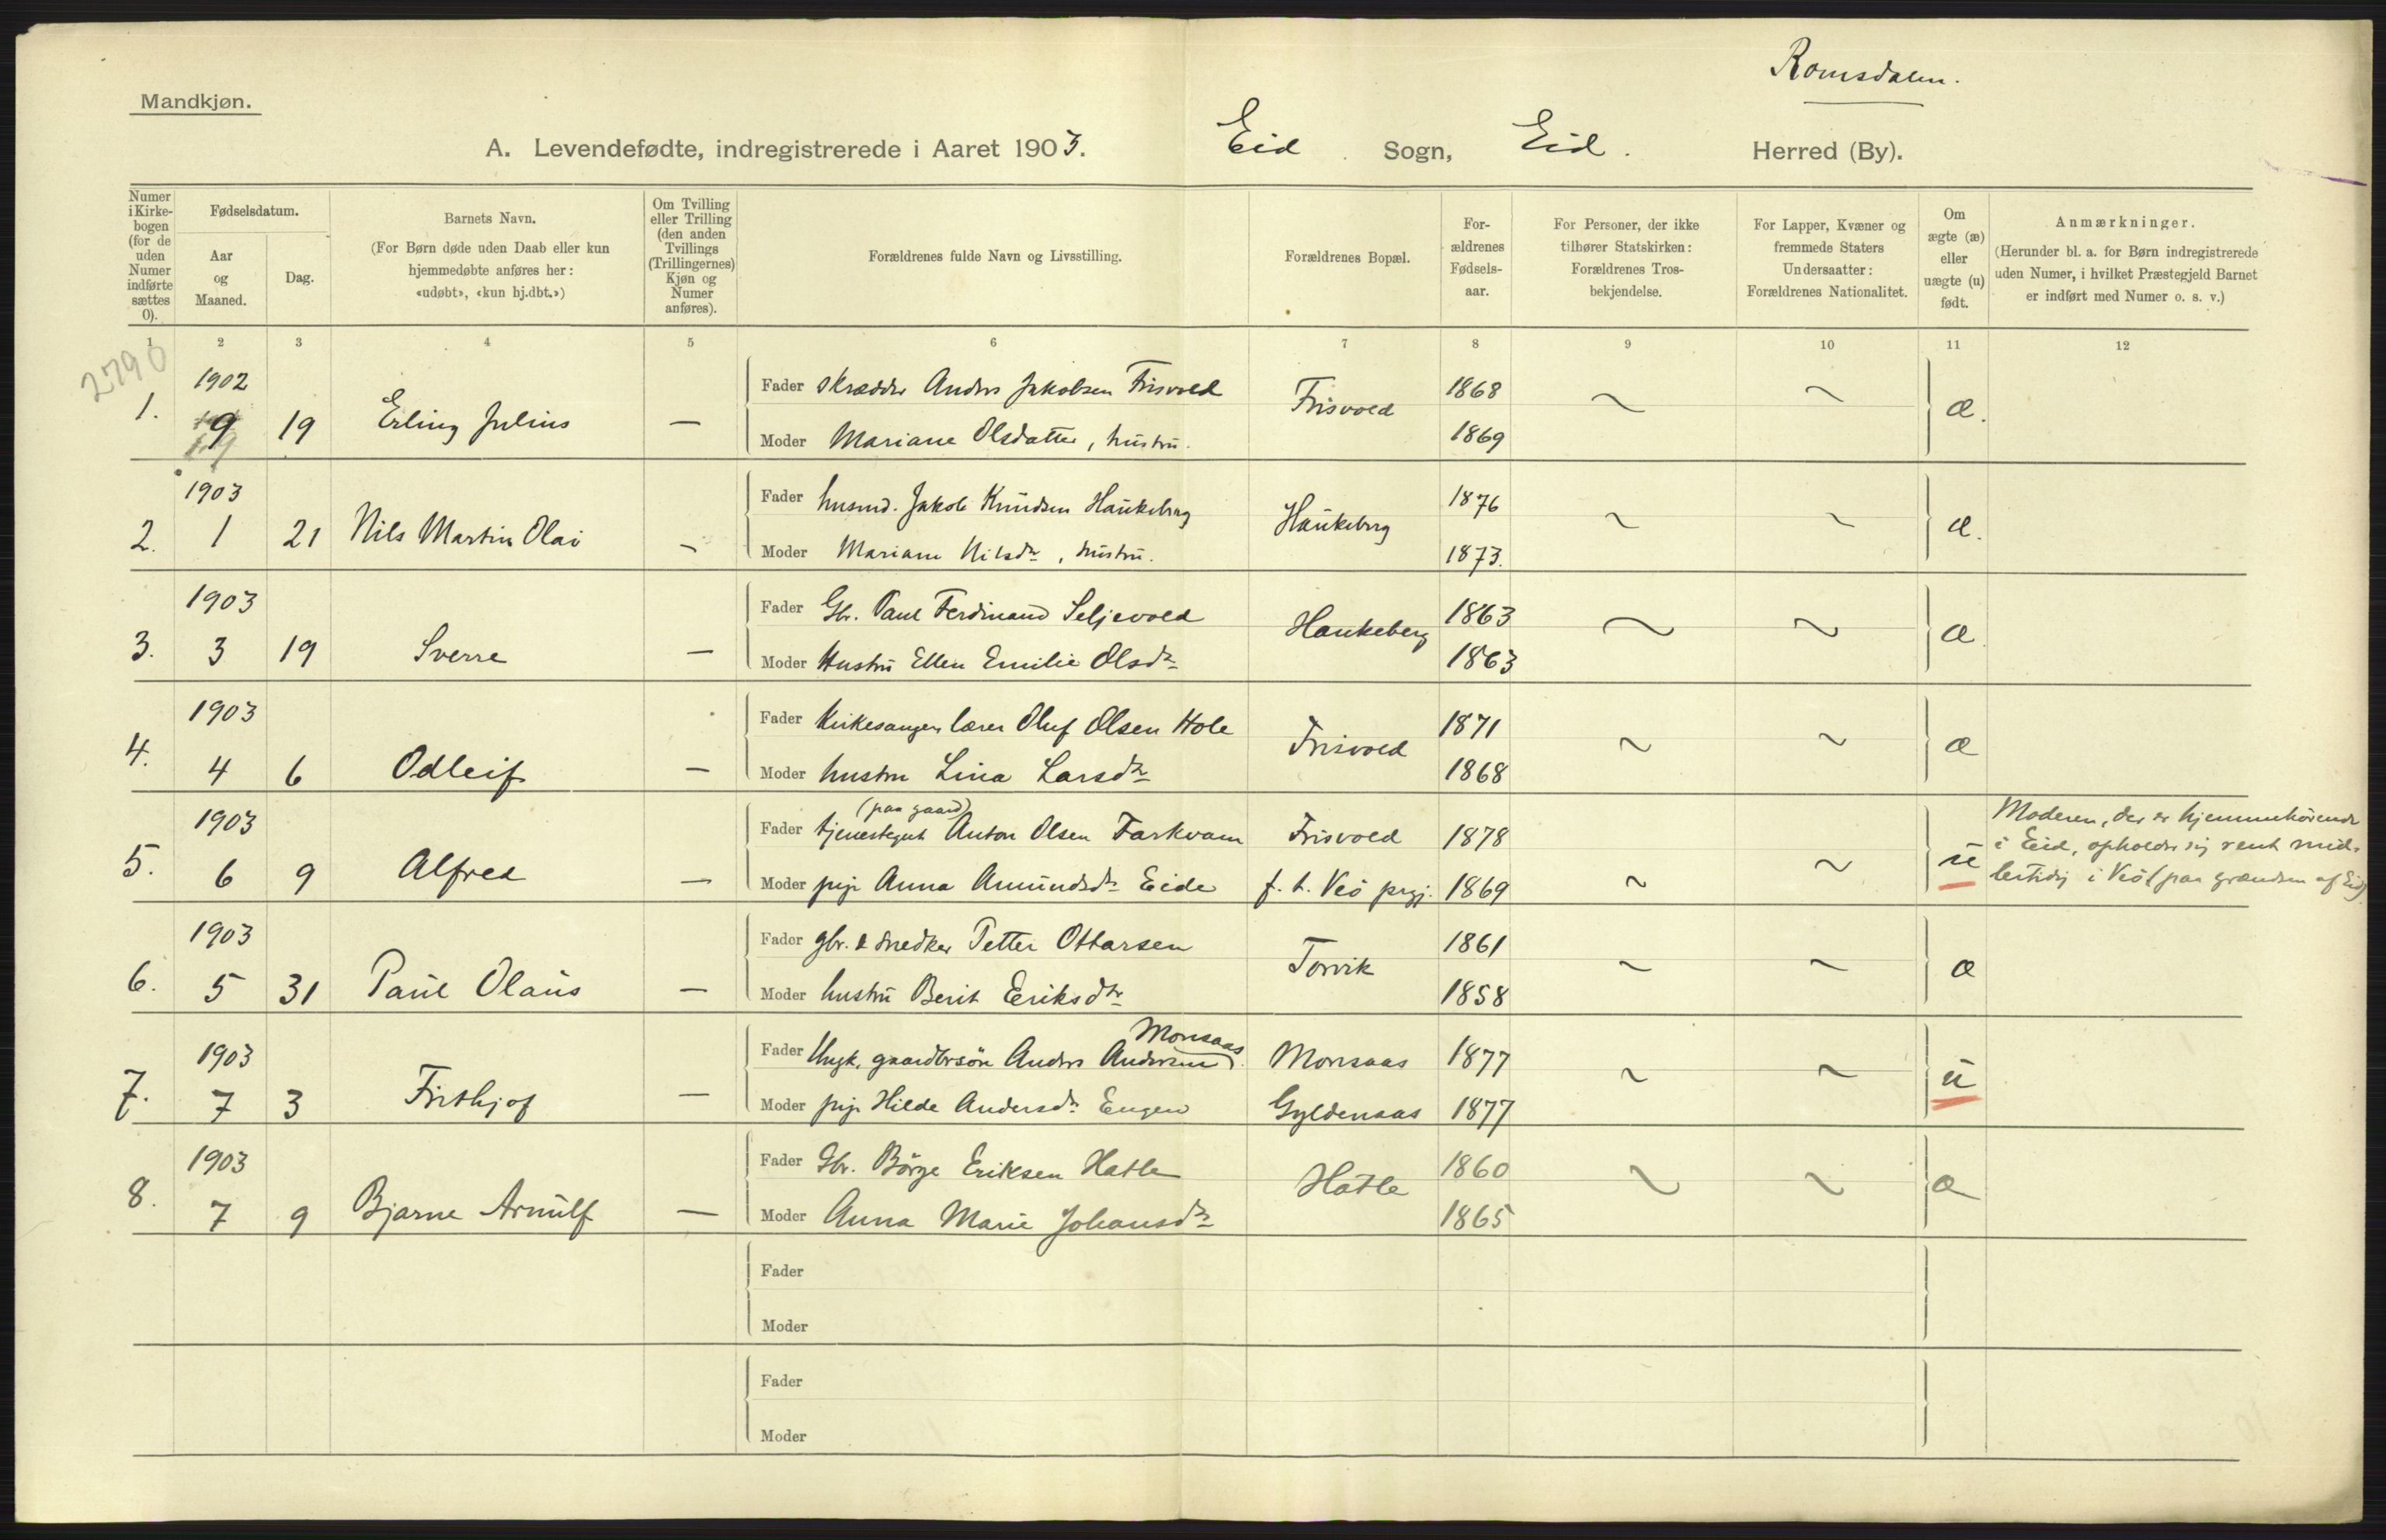 Romsdalen.
Mandkjøn.
A. Levendefødte, indregistrerede i Aaret 1903. Eid Sogn, Eid. Herred (By).
Numer i Kirkebogen (for de uden Numer indførte sættes 0).
Fødselsdatum.
Aar og Maaned.
Dag.
Barnets Navn.
(For Børn døde uden Daab eller kun hjemmedøbte anføres her: «udøbt», «kun hj.dbt.»)
Om Tvilling eller Trilling (den anden Tvillings (Trillingernes) Kjøn og Numer anføres).
Forældrenes fulde Navn og Livsstilling.
Forældrenes Bopæl.
Forældrenes Fødselsaar.
For Personer, der ikke tilhører Statskirken: Forældrenes Trosbekjendelse.
For Lapper, Kvæner og fremmede Staters Undersaatter: Forældrenes Nationalitet.
Om ægte (æ) eller uægte (u) født.
Anmærkninger.
(Herunder bl. a. for Børn indregistrerede uden Numer, i hvilket Præstegjeld Barnet er indført med Numer o. s. v.)
1 2 3 4 5 6 7 8 9 10 11 12
2790
1902
1. 9 19 Erling Julius —
Fader skrædder Anders Jakobsen Frisvold Frisvold 1868 ~ ~ æ.
Moder Mariane Olsdatter, hustru. 1869
1903
2. 1 21 Nils Martin Olai —
Fader husmd. Jakob Knudsen Haukeberg Haukeberg 1876 ~ ~ æ.
Moder Mariane Nilsdtr, hustru. 1873.
1903
3. 3 19 Sverre —
Fader Gbr. Paul Ferdinand Seljevold Haukeberg 1863 ~ ~ æ
Moder Hustru Ellen Emilie Olsdtr 1863
1903
4. 4 6 Odleif —
Fader Kirkesanger, lærer Oluf Olsen Hole Frisvold 1871 ~ ~ æ
Moder hustru Lina Larsdtr 1868
1903
5. 6 9 Alfred —
(paa gaard)
Fader tjenestegut Anton Olsen Farkvam Frisvold 1878 ~ ~ u
Moder pige Anna Amundsdtr Eide f. t. Veö prgj. 1869
Moderen, der er hjemmehörende
i Eid, opholder sig rent mid-
lertidig i Veö (paa grændsen af Eid)
1903
6. 5 31 Paul Olaus —
Fader gbr. & snedker Petter Ottarsen Torvik 1861 ~ ~ æ
Moder hustru Berit Eriksdtr 1858
1903
7. 7 3 Frithjof —
Monsaas
Fader Ungk. gaardbrsön Anders Andersen Monsaas 1877 ~ ~ u
Moder pige Hilde Andersdtr Engen Gyldenaas 1877
1903
8. 7 9 Bjarne Arnulf —
Fader Gbr. Börge Eriksen Hatle Hatle 1860 ~ ~ æ
Moder Anna Marie Johansdtr 1865
Fader
Moder
Fader
Moder